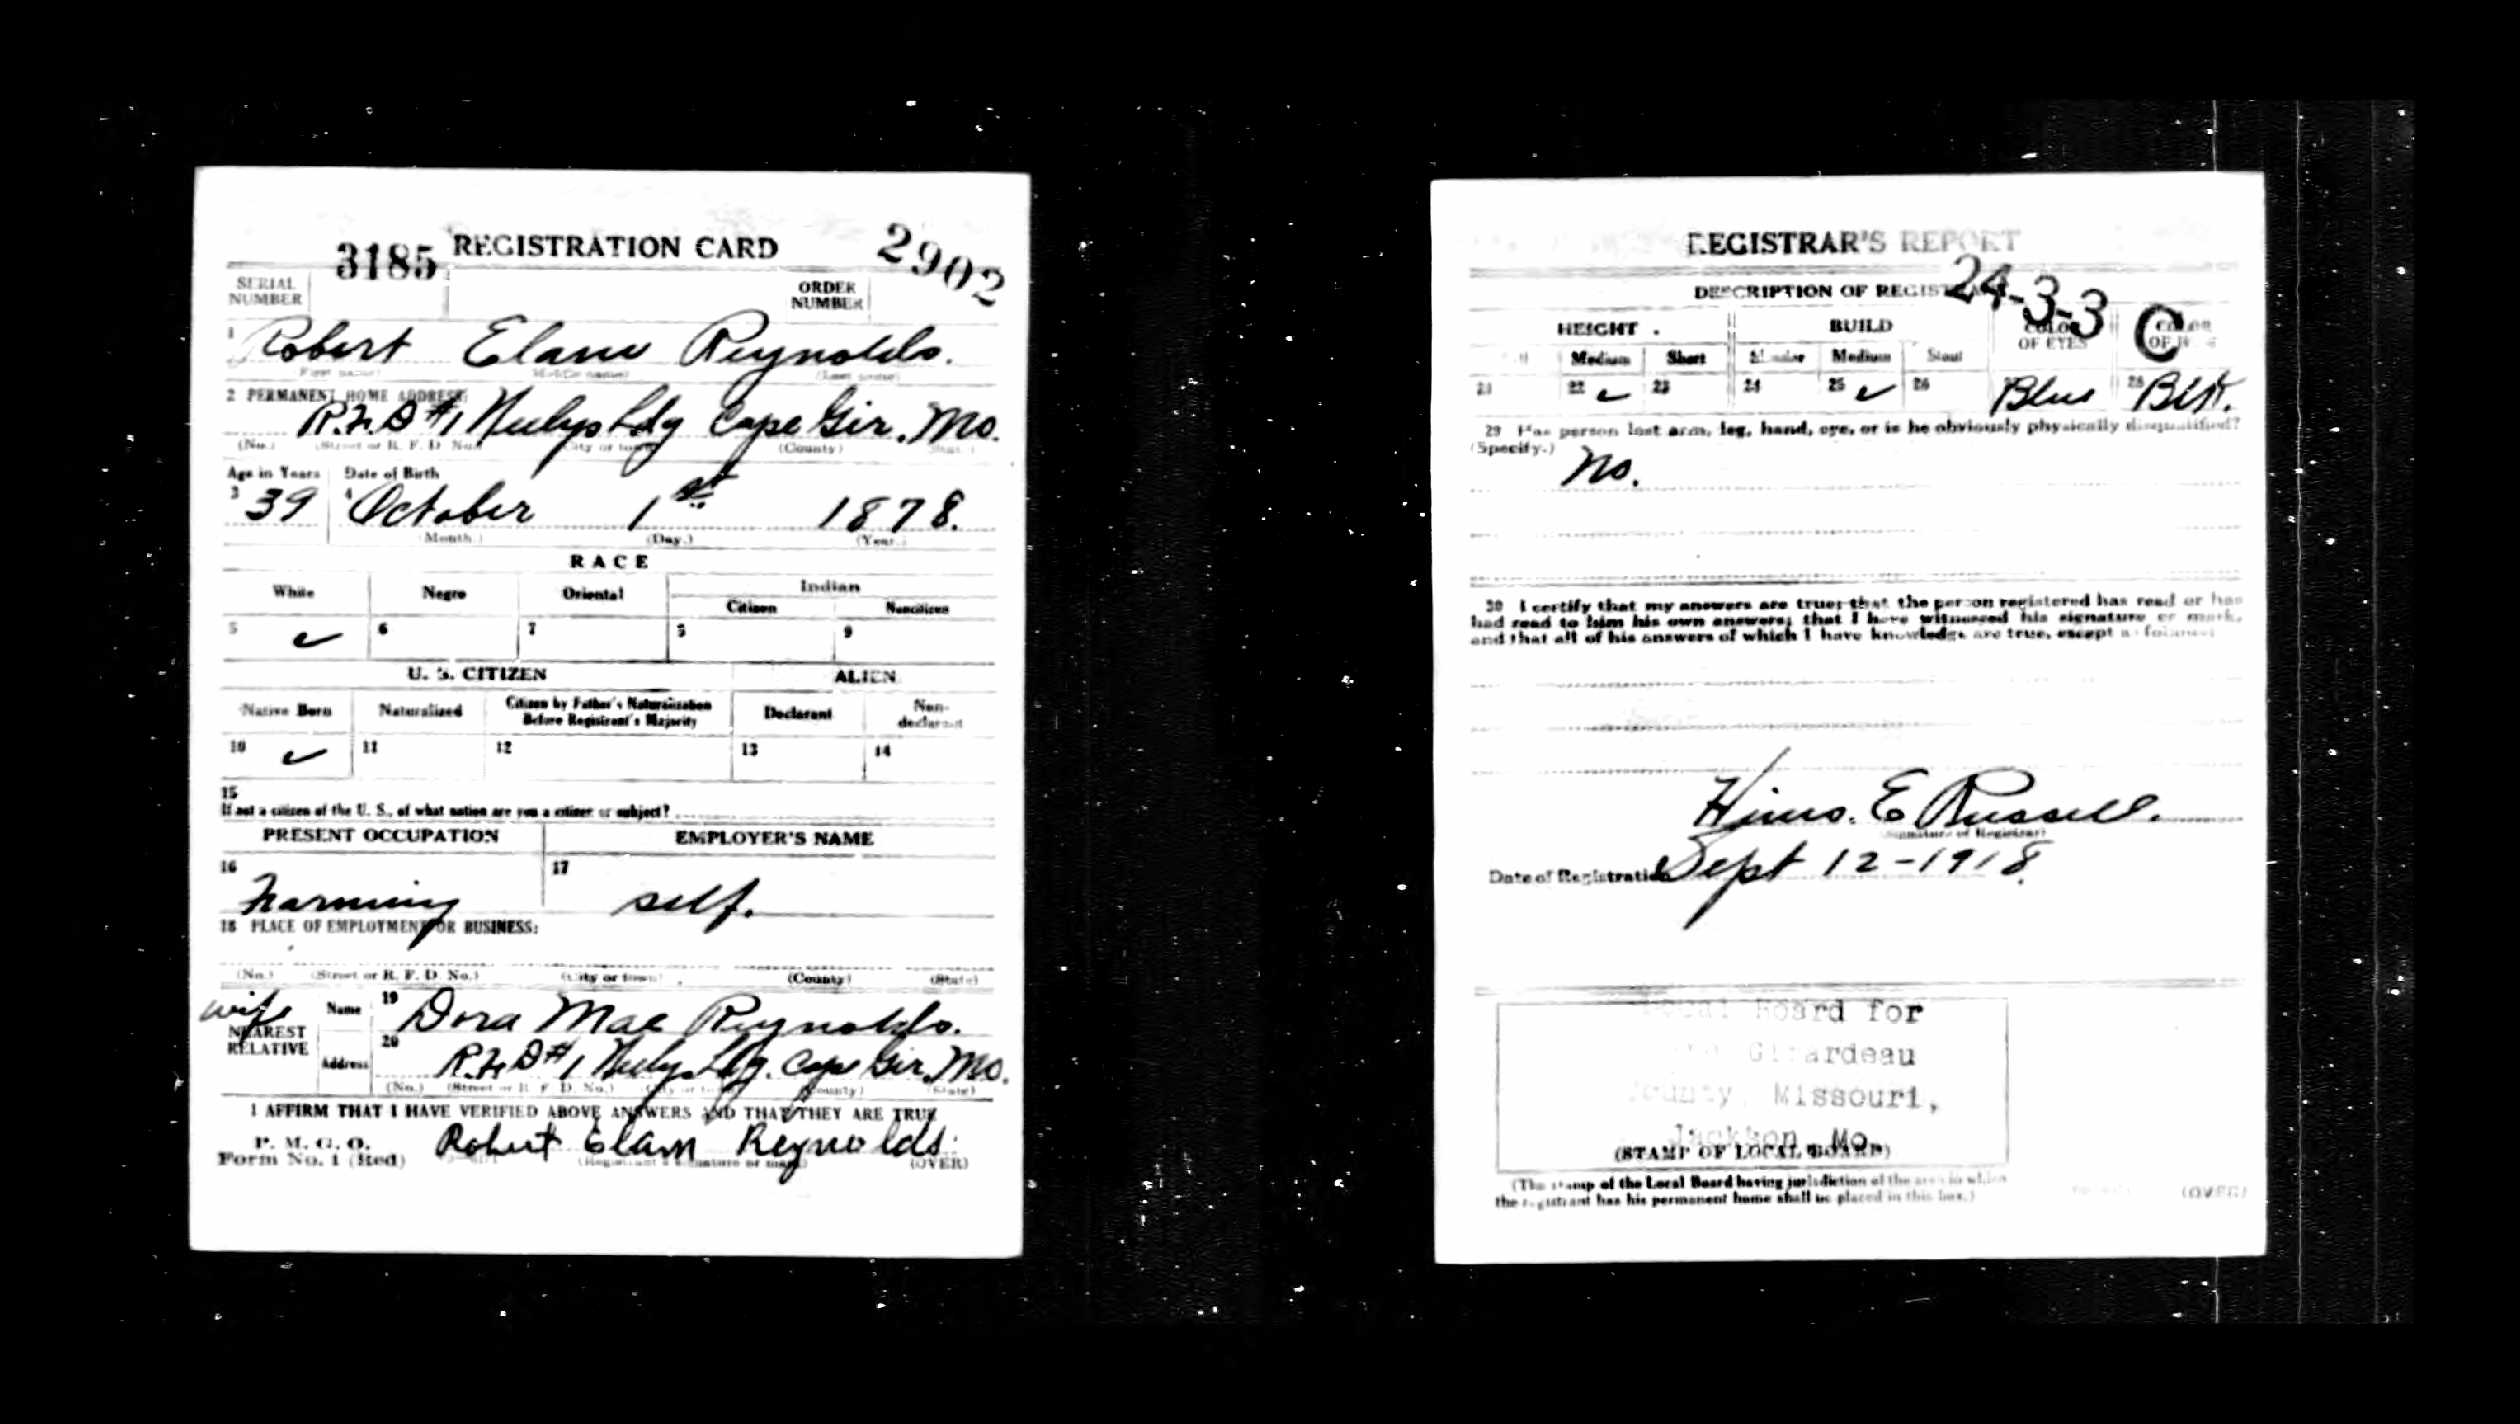 3185 REGISTRATION CARD 2902
SERIAL NUMBER
ORDER NUMBER
1 Robert Elam Reynolds.
(First name) (Middle name) (Last name)
2 PERMANENT HOME ADDRESS:
R.F.D #1 Neelys Ldg Cape Gir. Mo.
(No.) (Street or R. F. D. No.) (City or town) (County) (State)
Age in Years Date of Birth
3 39 4 October 1st 1878.
(Month.) (Day.) (Year.)
RACE
White Negro Oriental Indian
Citizen Noncitizen
5 ✓ 6 7 8 9
U. S. CITIZEN ALIEN
Native Born Naturalized Citizen by Father's Naturalization Before Registrant's Majority Declarant Non-declarant
10 ✓ 11 12 13 14
15
If not a citizen of the U. S., of what nation are you a citizen or subject?
PRESENT OCCUPATION EMPLOYER'S NAME
16 Farming 17 self.
18 PLACE OF EMPLOYMENT OR BUSINESS:
(No.) (Street or R. F. D. No.) (City or town) (County) (State)
wife
NEAREST RELATIVE
Name 19 Dora Mae Reynolds.
Address 20 R.F.D #1 Neelys Ldg. Cape Gir. Mo.
(No.) (Street or R. F. D. No.) (City or town) (County) (State)
I AFFIRM THAT I HAVE VERIFIED ABOVE ANSWERS AND THAT THEY ARE TRUE
P. M. G. O.
Form No. 1 (Red) Robert Elam Reynolds.
(Registrant's signature or mark) (OVER)
REGISTRAR'S REPORT
24-3-3 C
DESCRIPTION OF REGISTRANT
HEIGHT BUILD COLOR OF EYES COLOR OF HAIR
Medium Short Slender Medium Stout
21 22 ✓ 23 24 25 ✓ 26 Blue 28 Blk.
29 Has person lost arm, leg, hand, eye, or is he obviously physically disqualified?
(Specify.) No.
30 I certify that my answers are true; that the person registered has read or has
had read to him his own answers; that I have witnessed his signature or mark,
and that all of his answers of which I have knowledge are true, except as follows:
E Russell.
(Signature of Registrar)
Date of Registration Sept 12-1918.
Local Board for
Girardeau
County, Missouri,
Jackson, Mo.
(STAMP OF LOCAL BOARD)
(The stamp of the Local Board having jurisdiction of the area in which
the registrant has his permanent home shall be placed in this box.)
(OVER)